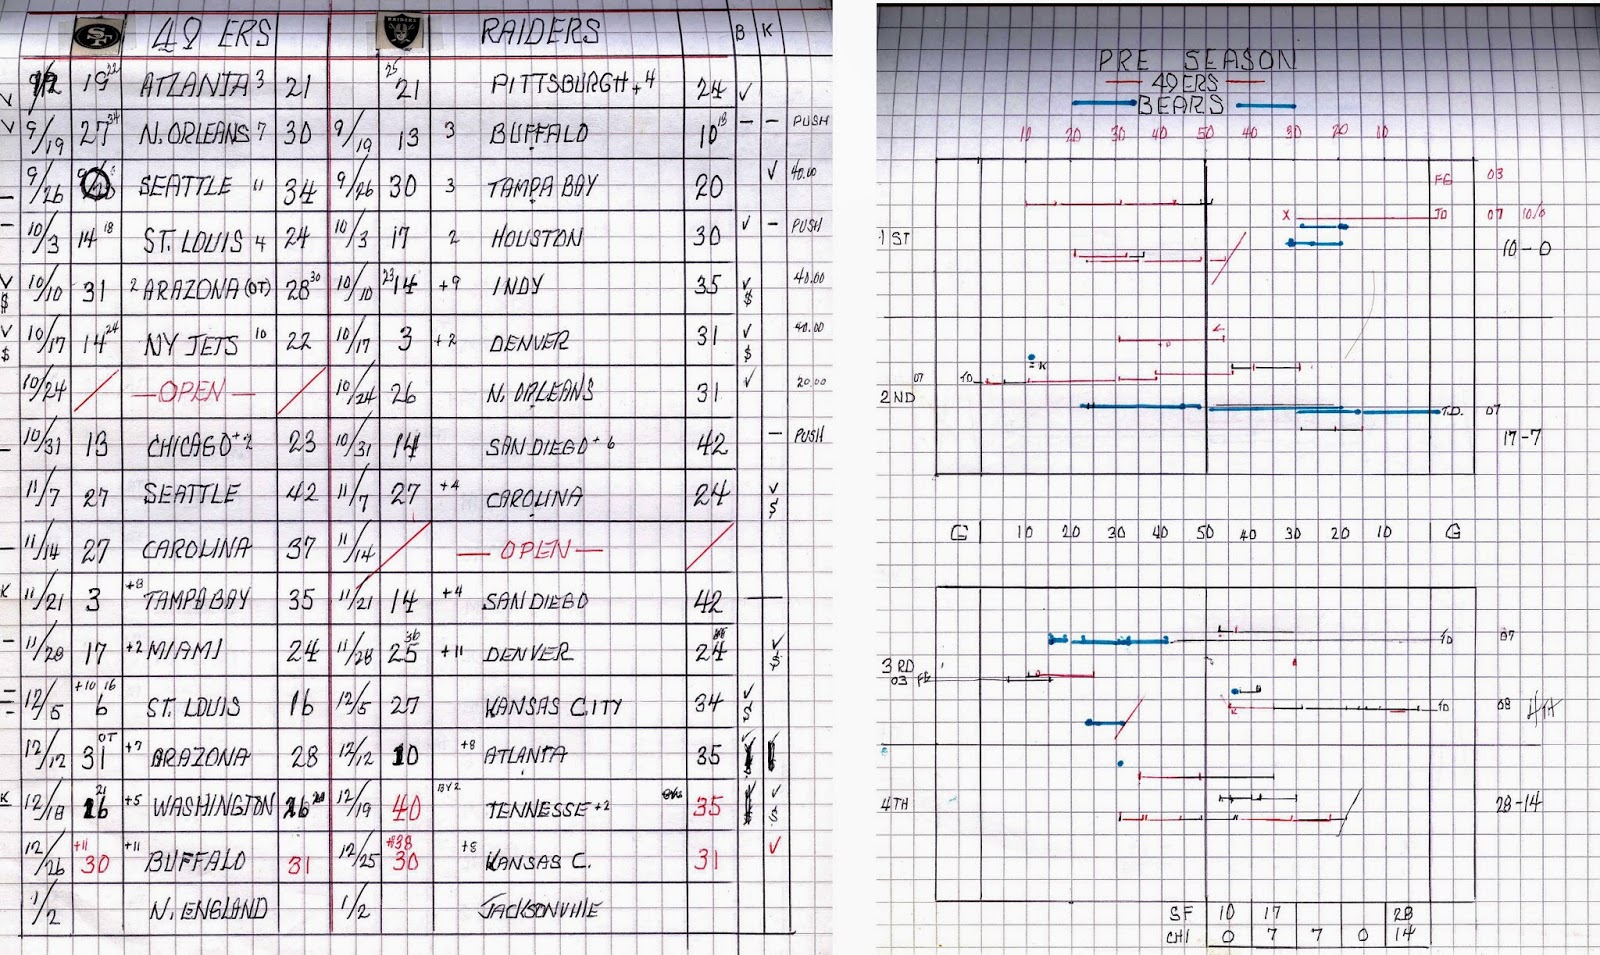 49ERS RAIDERS B K
19 22 ATLANTA 3 21 25 21 PITTSBURGH +4 24
9/19 27 34 N. ORLEANS 7 30 9/19 13 3 BUFFALO 10 13 — — PUSH
9/26 SEATTLE 11 34 9/26 30 3 TAMPA BAY 20 40.00
10/3 14 18 ST. LOUIS 4 24 10/3 17 2 HOUSTON 30 — PUSH
$ 10/10 31 2 ARAZONA (OT) 28 30 10/10 23 14 +9 INDY 35 $ 40.00
$ 10/17 14 24 NY JETS 10 22 10/17 3 +2 DENVER 31 $ 40.00
10/24 — OPEN — 10/24 26 N. ORLEANS 31 20.00
10/31 13 CHICAGO +2 23 10/31 14 SAN DIEGO +6 42 — PUSH
11/7 27 SEATTLE 42 11/7 27 +4 CAROLINA 24 $
11/14 27 CAROLINA 37 11/14 — OPEN —
K 11/21 3 +8 TAMPA BAY 35 11/21 14 +4 SAN DIEGO 42 —
11/28 17 +2 MIAMI 24 11/28 25 36 +11 DENVER 24 $
12/5 +10 16 6 ST. LOUIS 16 12/5 27 KANSAS CITY 34 $
12/12 31 OT +7 ARAZONA 28 12/12 10 +8 ATLANTA 35
K 12/18 16 21 +5 WASHINGTON 26 12/19 40 BY 2 TENNESSE +2 35 $
12/26 +11 30 +11 BUFFALO 31 12/25 38 30 +8 KANSAS C. 31
1/2 N. ENGLAND 1/2 JACKSONVILLE
PRE SEASON
49ERS
BEARS
10 20 30 40 50 40 30 20 10
FG 03
X TD 07 10/0
1ST 10-0
K
07 TD
2ND T.D. 07
17-7
G 10 20 30 40 50 40 30 20 10 G
TD 07
3RD
03 FG
TD 08 4TH
4TH 28-14
SF 10 17 28
CHI 0 7 7 0 14